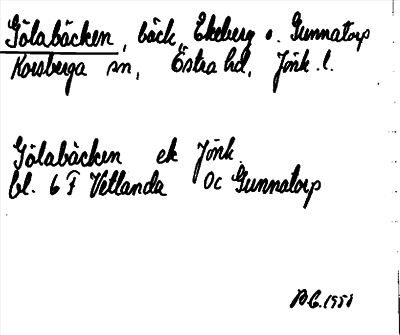 Gölabäcken, bäck, Ekeberg o. Gunnatorp
Korsberga sn, Östra hd, Jönk. l.
Gölabäcken ek Jönk.
bl. 6 F Vetlanda Oc Gunnatorp